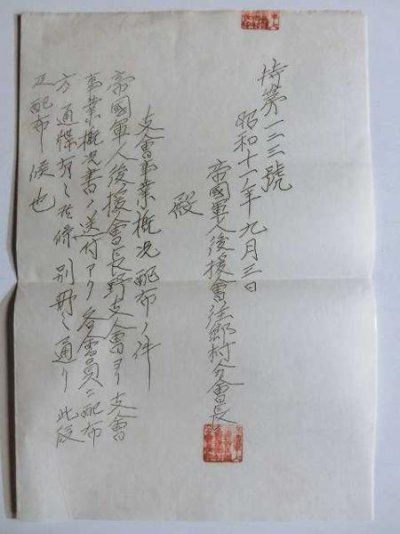 特第一二三號
昭和十一年九月三日
帝國軍人後援會 村分會長
殿
支會事業概況配布ノ件
帝國軍人後援會長野支會ヨリ支會
事業概況書ノ送付アリ各會員ニ配布
方通牒有之候條別冊之通リ此段
及配布候也